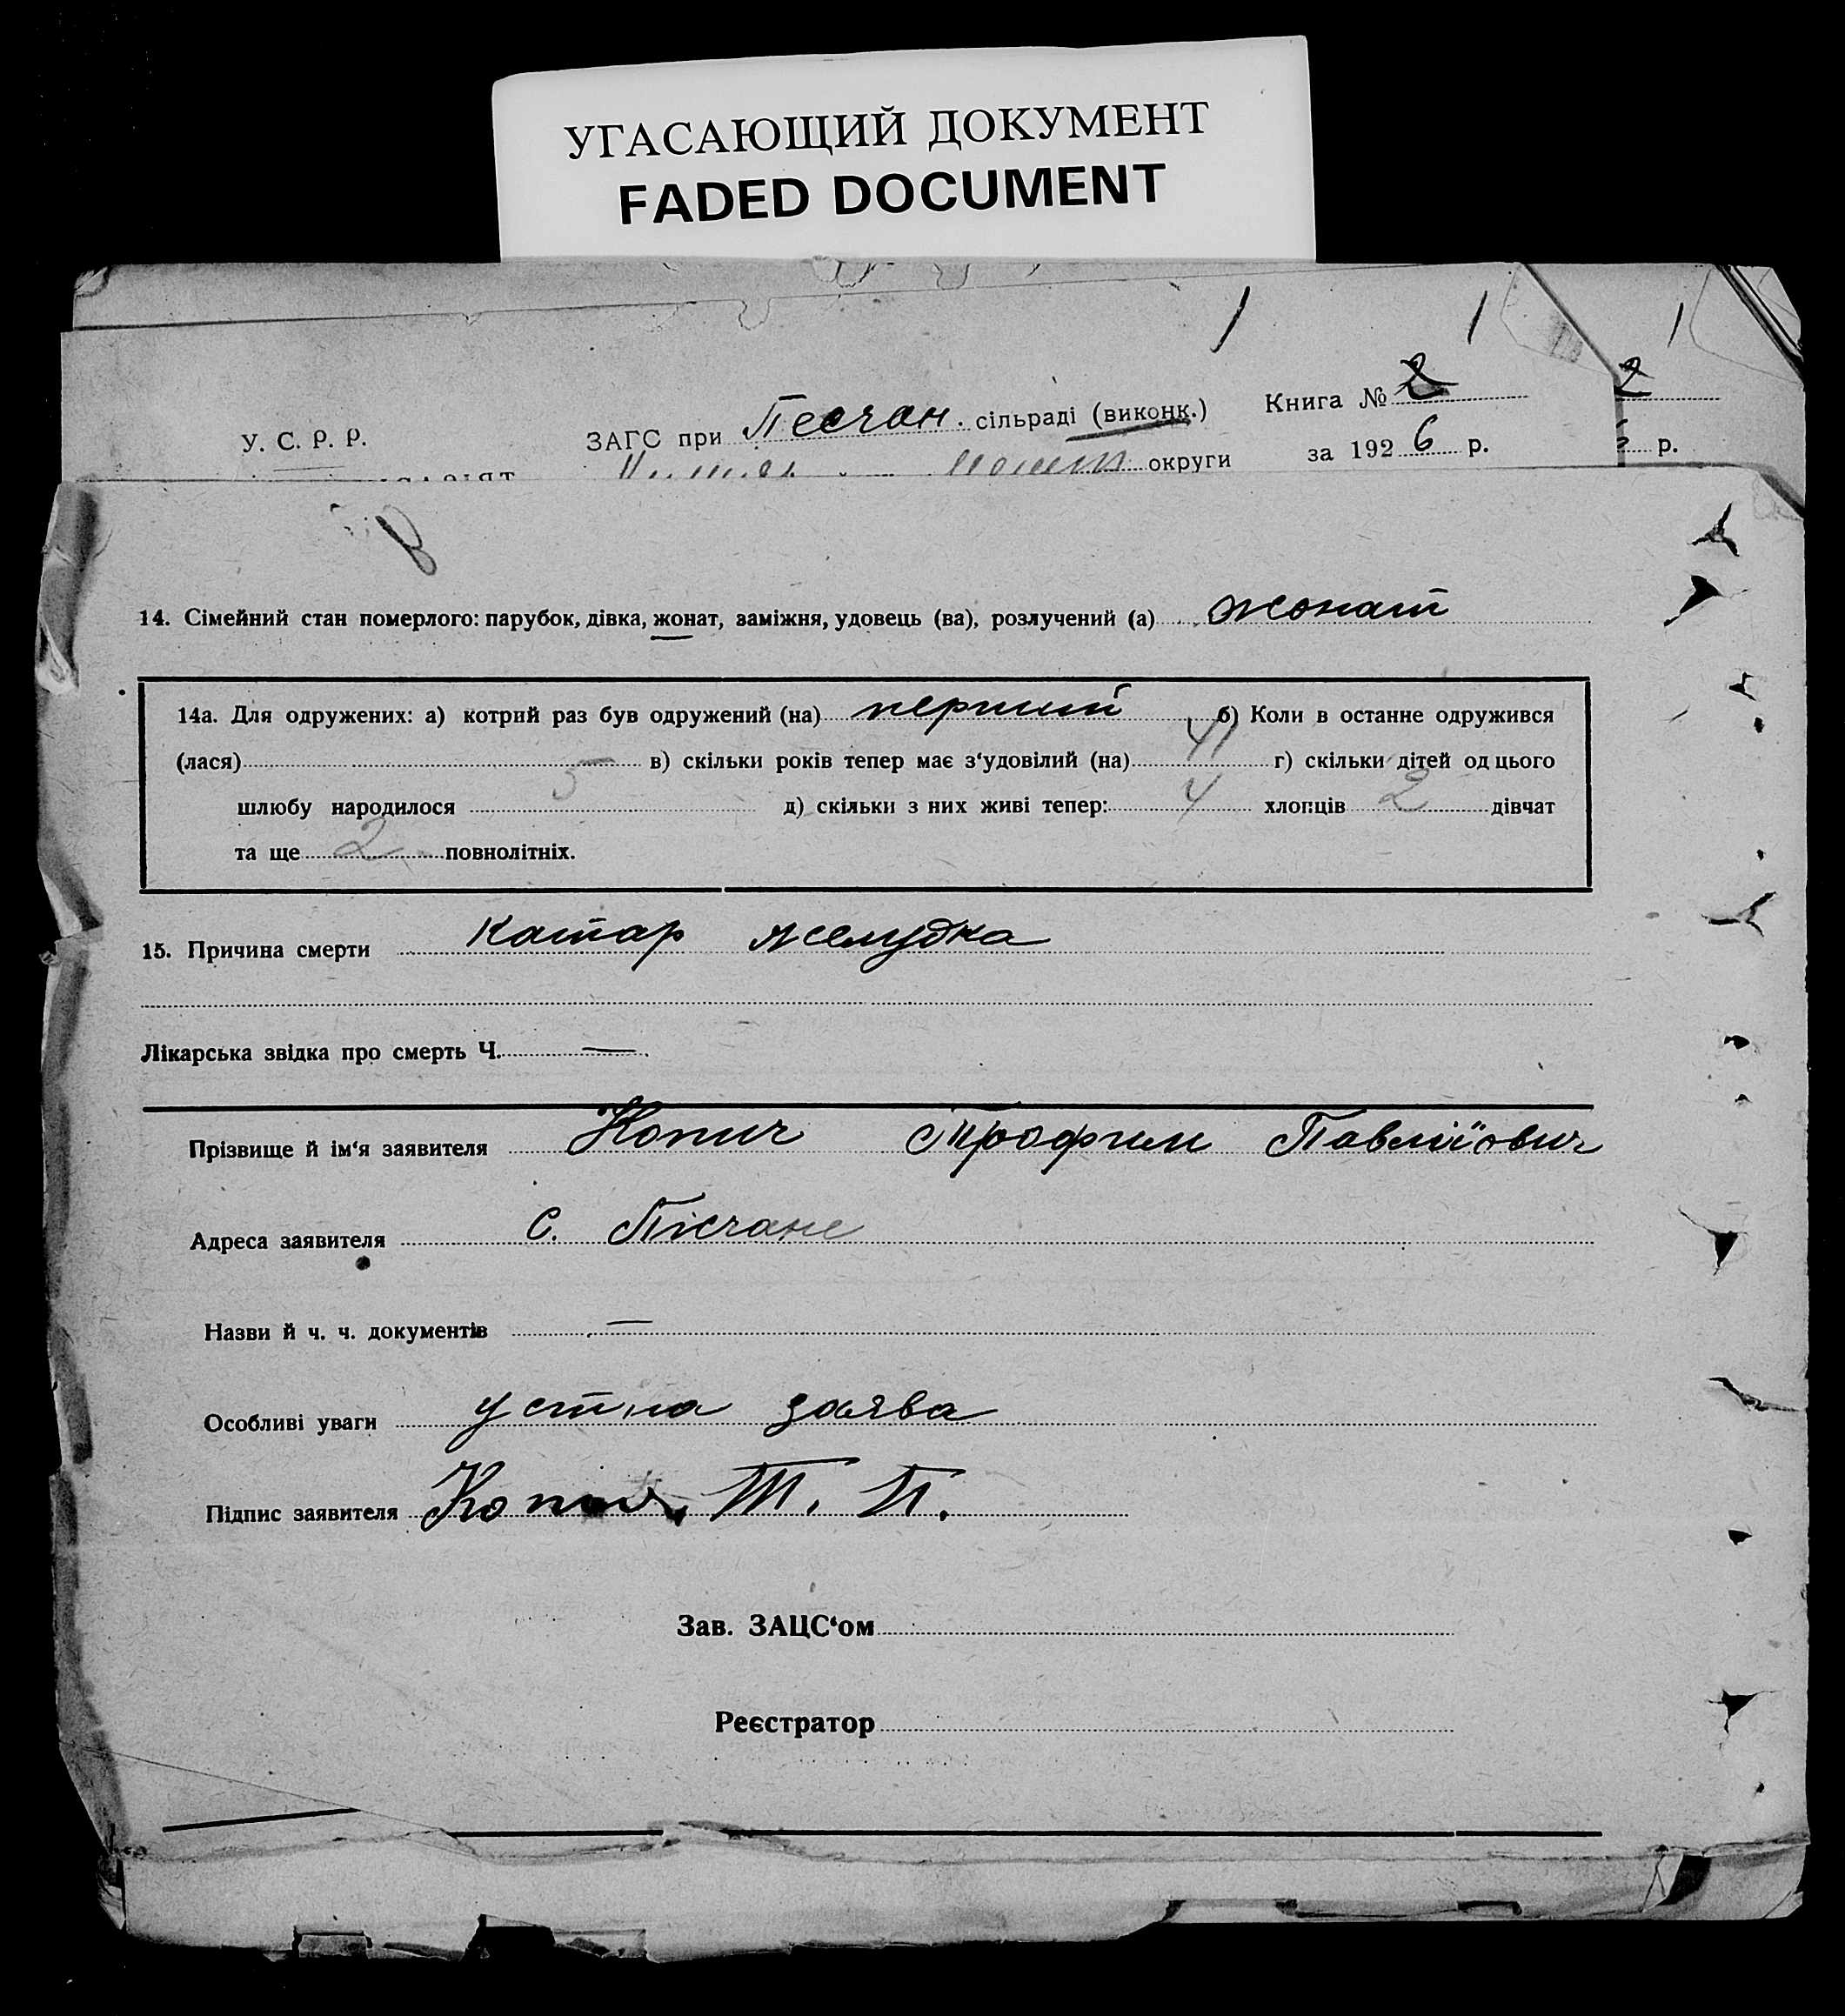 УГАСАЮЩИЙ ДОКУМЕНТ
FADED DOCUMENT
1 1 1
У. С. Р. Р. ЗАГС при Песчан. сільраді (виконк.) Книга № 2 2
округи за 192 6 р. р.
14. Сімейний стан померлого: парубок, дівка, жонат, заміжня, удовець (ва), розлучений (а) жонат
14а. Для одружених: а) котрий раз був одружений (на) перший б) Коли в останне одружився
(лася) в) скільки років тепер має з‘удовілий (на) 41 г) скільки дітей од цього
шлюбу народилося 5 д) скільки з них живі тепер: 4 хлопців 2 дівчат
та ще 2 повнолітніх.
15. Причина смерти Катар желудка
Лікарська звідка про смерть Ч. —
Прізвище й ім‘я заявителя Копич Трофим Павлійович
Адреса заявителя с. Пісчане
Назви й ч. ч. документів —
Особливі уваги устна заява
Підпис заявителя Копич Т. П.
Зав. ЗАЦС‘ом
Реєстратор